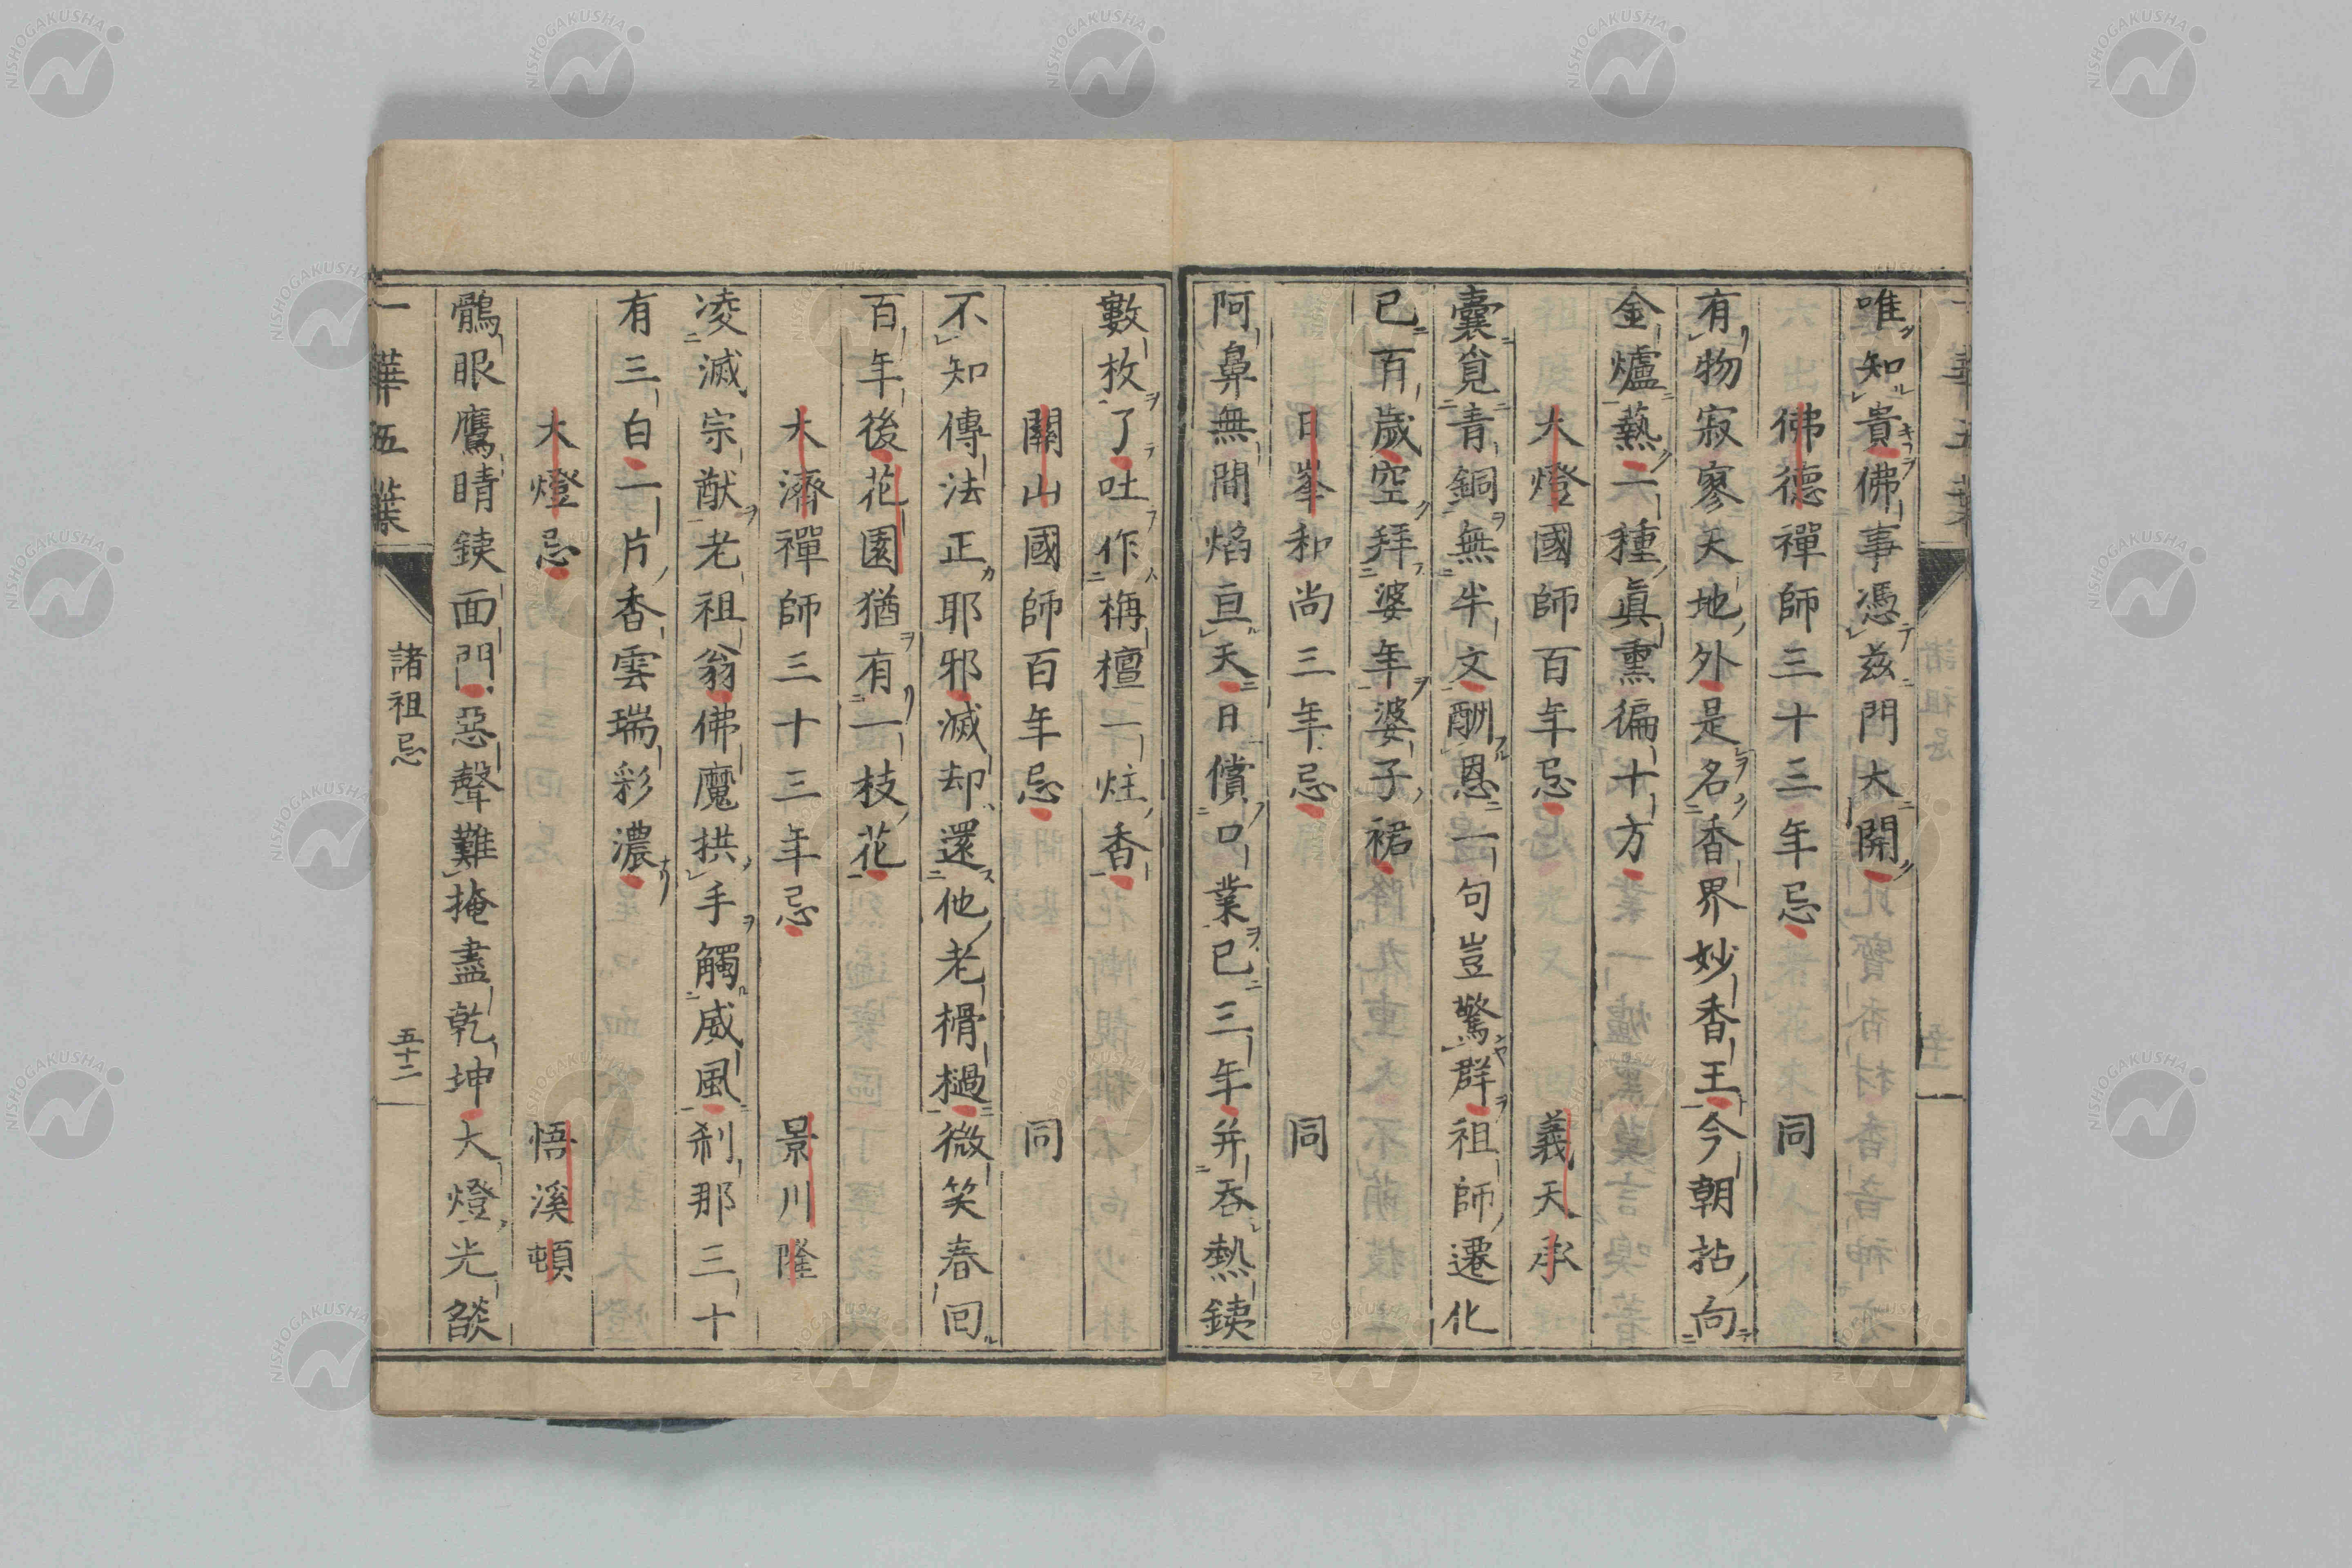 唯知貴佛事憑茲門大開
佛德禪師三十三年忌 同
有物寂寥天地外是名香界妙香王今朝拈向
金爐爇二種眞熏徧十方
大燈國師百年忌 義天承
囊覓青銅無半文酬恩一句豈驚群祖師遷化
已百歲空拜婆年婆子裙
日峯和尚三年忌 同
阿鼻無間焰亘天日償口業已三年并吞熱鐵
數枚了吐作栴檀一炷香
關山國師百年忌 同
不知傳法正耶邪滅却還他老榾檛微笑春回
百年後花園猶有一枝花
大濟禪師三十三年忌 景川隆
凌滅宗猷老祖翁佛魔拱手觸威風刹那三十
有三白二片香雲瑞彩濃
大燈忌 悟溪頓
鶻眼鷹睛鐵面門惡聲難掩盡乾坤大燈光燄
一華五葉 諸祖忌 五十二